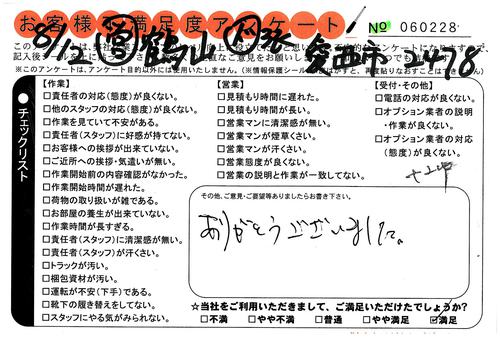 お客様満足度アンケート!
No 060228
8/12 鶴山 愛西市 2478
※このアンケートは、アンケート目的以外には使用いたしません。
チェックリスト
【作業】
□責任者の対応(態度)が良くない。
□他のスタッフの対応(態度)が良くない。
□作業を見ていて不安がある。
□責任者(スタッフ)に好感が持てない。
□お客様への挨拶が出来ていない。
□ご近所への挨拶・気遣いが無い。
□作業開始前の内容確認がなかった。
□作業開始時間が遅れた。
□荷物の取り扱いが雑である。
□お部屋の養生が出来ていない。
□作業時間が長すぎる。
□責任者(スタッフ)に清潔感が無い。
□責任者(スタッフ)が汗くさい。
□トラックが汚い。
□梱包資材が汚い。
□運転が不安(下手)である。
□靴下の履き替えをしてない。
□スタッフにやる気がみられない。
【営業】
□見積もり時間に遅れた。
□見積もり時間が長い。
□営業マンに清潔感が無い。
□営業マンが煙草くさい。
□営業マンが汗くさい。
□営業態度が良くない。
□営業の説明と作業が一致してない。
【受付・その他】
□電話の対応が良くない。
□オプション業者の説明
・作業が良くない。
□オプション業者の対応
(態度)が良くない。
その他、ご意見・ご要望等ありましたらお書き下さい。
ありがとうございました。
☆当社をご利用いただきまして、ご満足いただけたでしょうか?
□不満 □やや不満 □普通 □やや満足 ☑満足